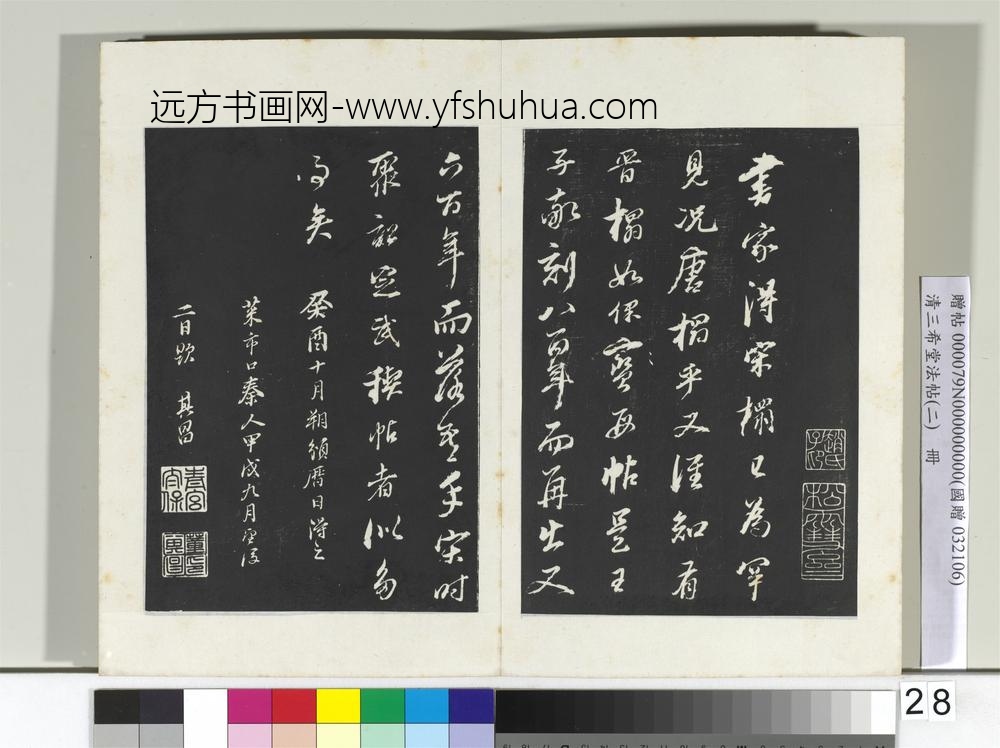 远方书画网-www.yfshuhua.com
書家得宋榻已為罕
見況唐榻乎又誰知有
晉榻如保母帖是王
子敬刻八百年而再出又
六百年而落吾手宋時
聚詔定武稧帖者似多
事矣 癸酉十月朔頒曆日得之
菜市口秦人甲戌九月
二日題 其昌
趙氏子昂
松雪齋
贈帖 000079N000000000(國贈 032106)
清三希堂法帖(二) 冊
28